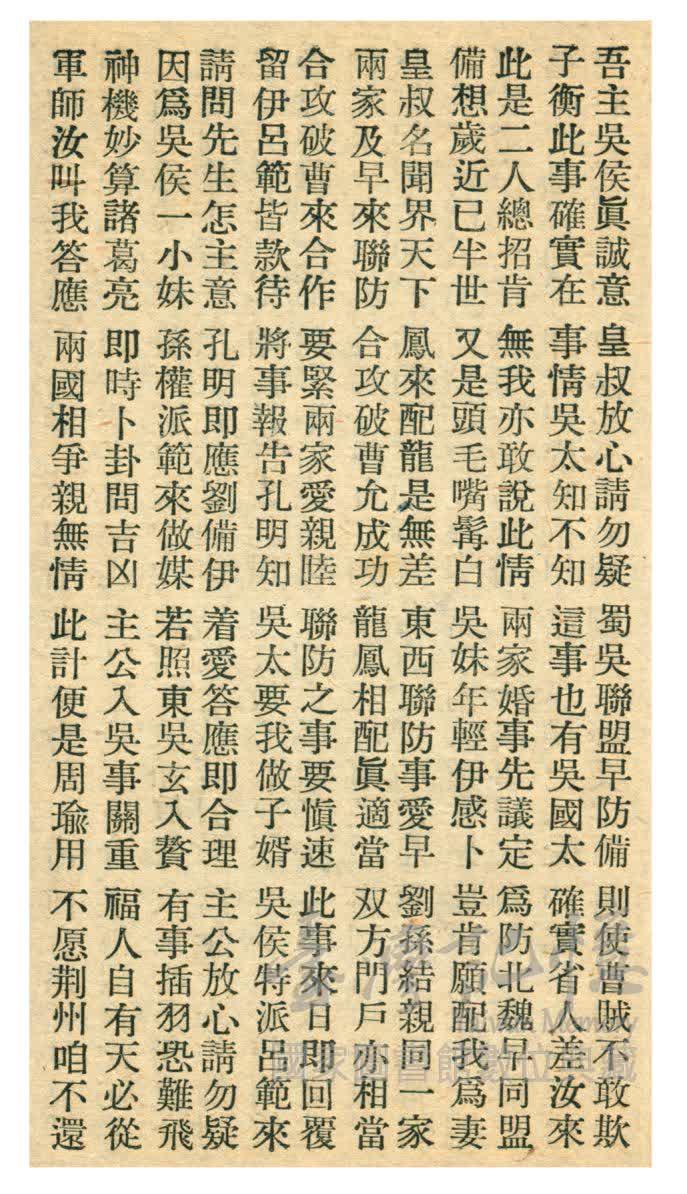 吾主吳侯眞誠意 皇叔放心請勿疑 蜀吳聯盟早防備 則使曹賊不敢欺
子衡此事確實在 事情吳太知不知 這事也有吳國太 確實省人差汝來
此是二人總招肯 無我亦敢說此情 兩家婚事先議定 爲防北魏早同盟
備想歲近已半世 又是頭毛嘴鬍白 吳妹年輕伊感卜 豈肯願配我爲妻
皇叔名聞界天下 鳳來配龍是無差 東西聯防事愛早 劉孫結親同一家
兩家及早來聯防 合攻破曹允成功 龍鳳相配眞適當 双方門戶亦相當
合攻破曹來合作 要緊兩家愛親陸 聯防之事要愼速 此事來日即回覆
留伊呂範皆款待 將事報告孔明知 吳太要我做子婿 吳侯特派呂範來
請問先生怎主意 孔明即應劉備伊 着愛答應即合理 主公放心請勿疑
因爲吳侯一小妹 孫權派範來做媒 若照東吳玄入贅 有事插羽恐難飛
神機妙算諸葛亮 即時卜卦問吉凶 主公入吳事關重 福人自有天必從
軍師汝叫我答應 兩國相爭親無情 此計便是周瑜用 不愿荆州咱不還
臺灣記憶
Taiwan Memory
國家圖書館數位典藏